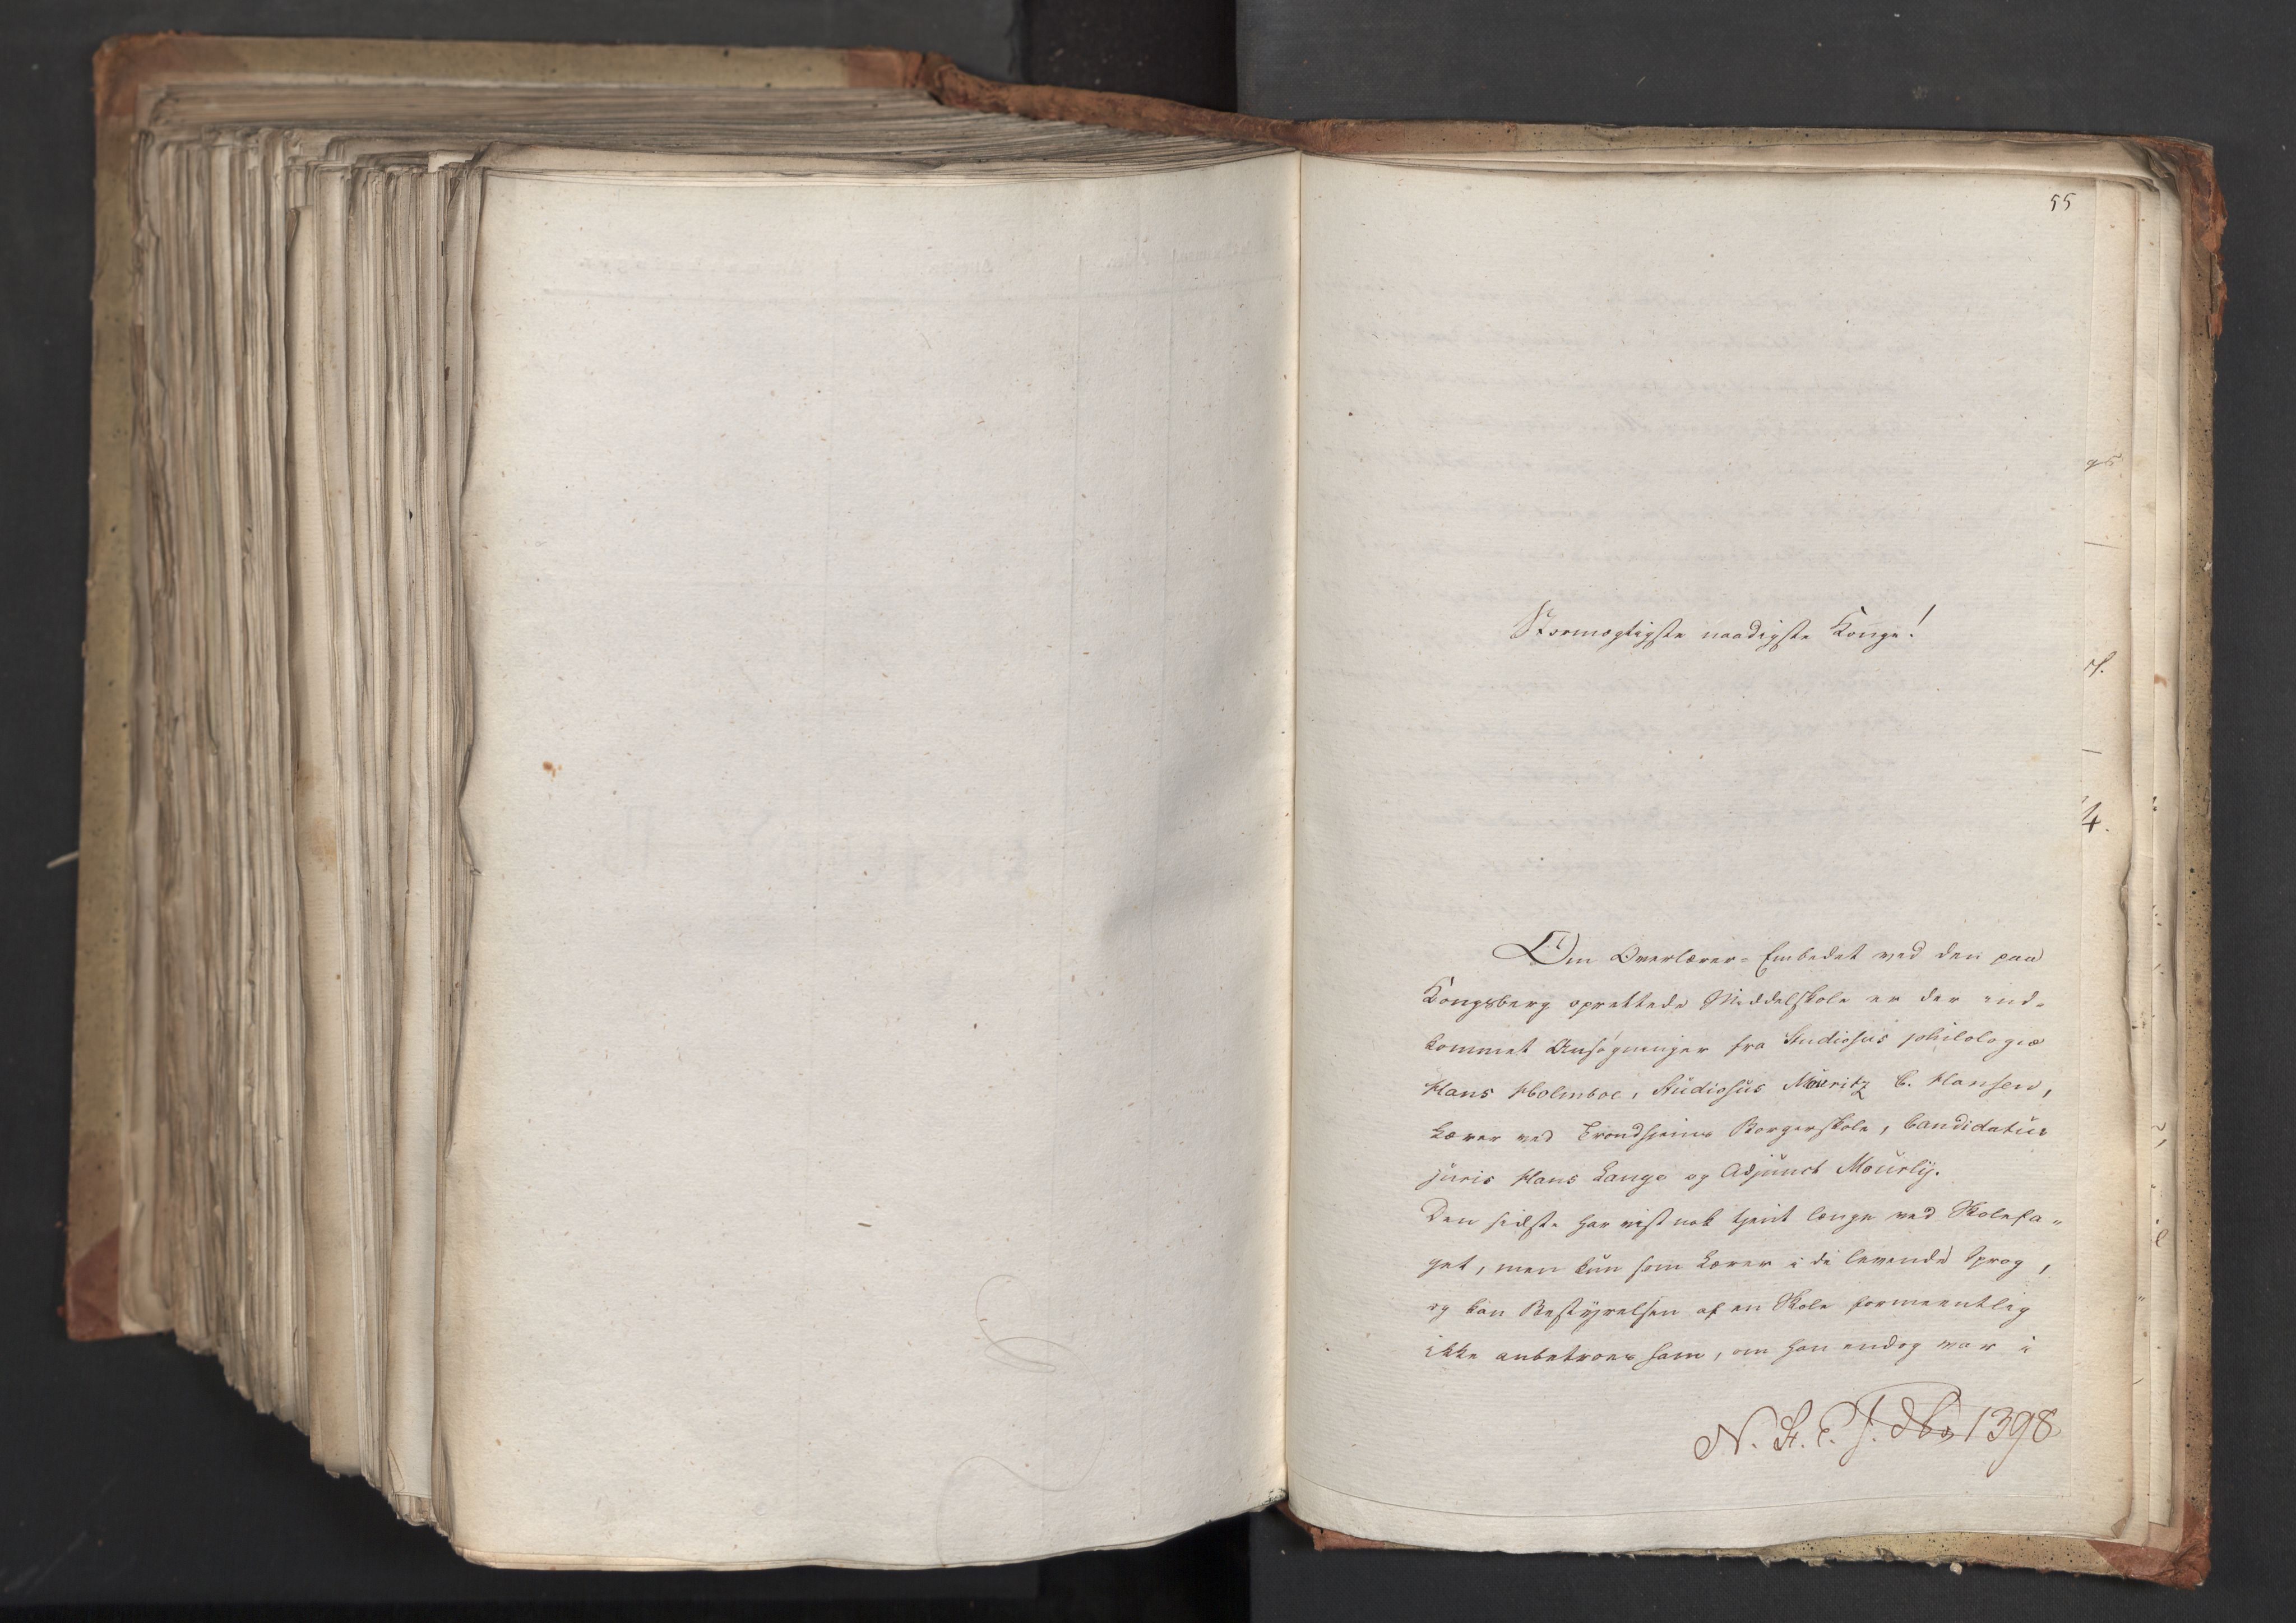 55
Stormægtigste naadigste Konge!
Om Overlærer-Embedet ved den paa
Kongsberg oprettede Middelskole er der ind-
kommet Ansøgninger fra Studiosus philologiæ
Hans Holmboe, Studiosus Mauritz C. Hansen,
Lærer ved Trondhjems Borgerskole, Candidatus
juris Hans Lange og Adjunct Mously.
Den sidste har vist nok tjent længe ved Skolefa-
get, men kun som Lærer i de levende Sprog,
og kan Bestyrelsen af en Skole formeentlig
ikke anbetroes ham, om han endog var i
N. St. E. 1398